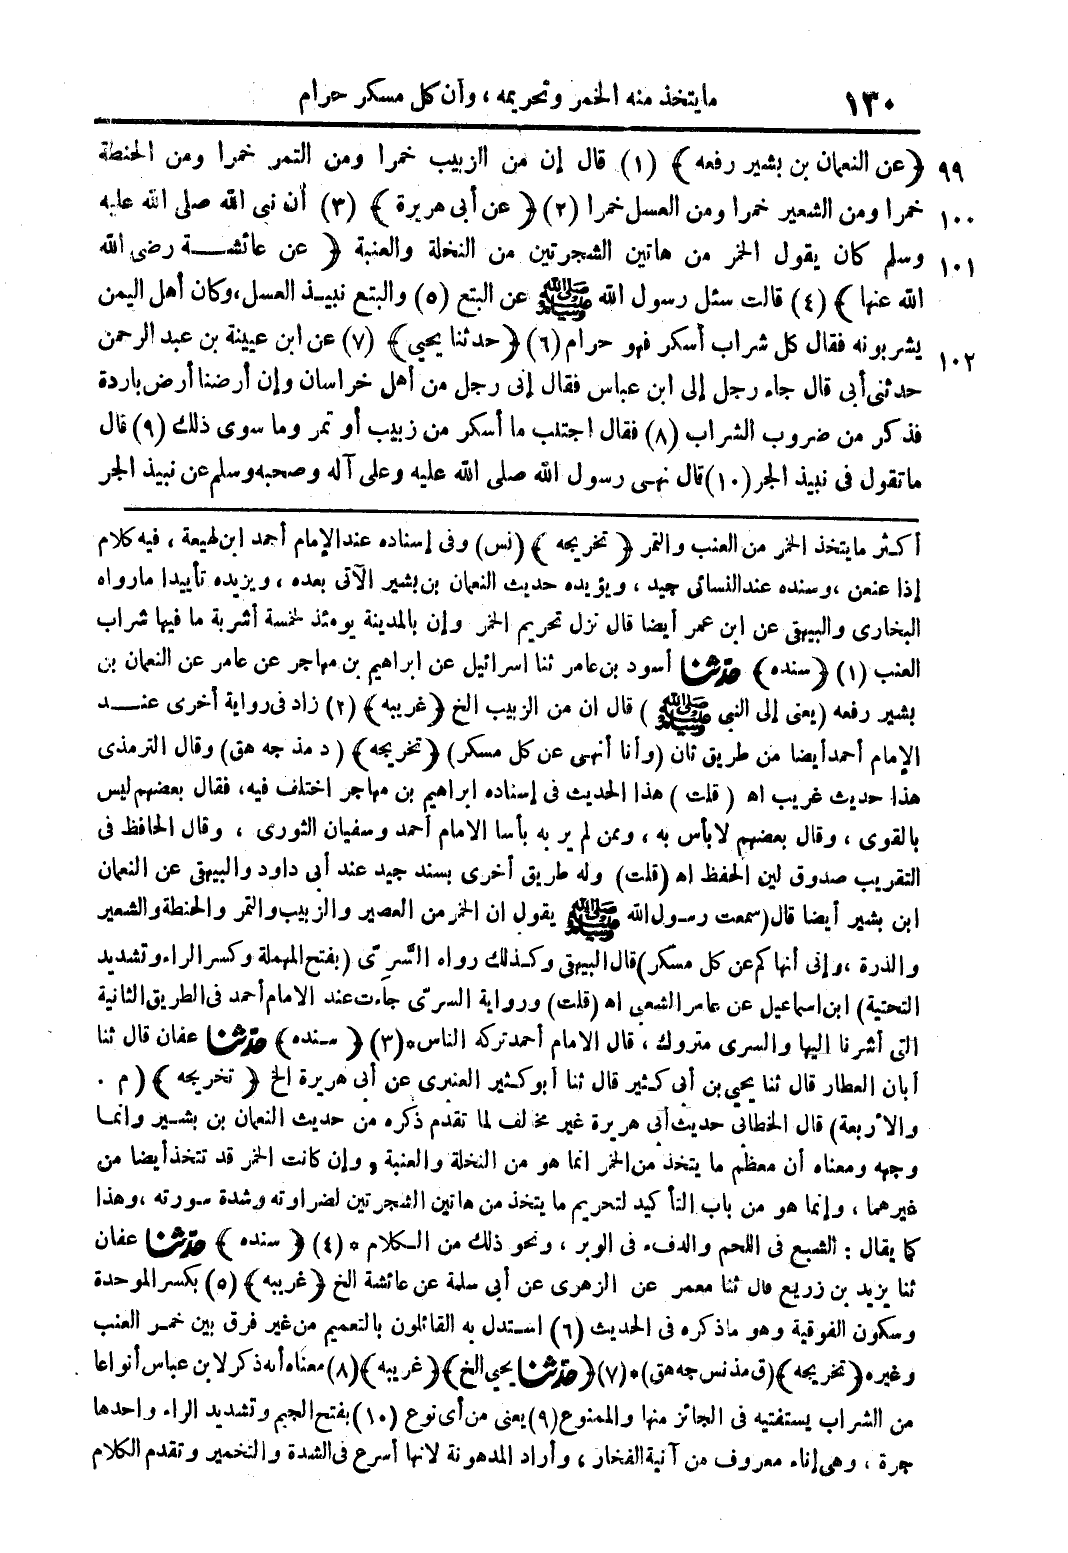 ١٣٠ ما يتخذ منه الخمر وتحريمه ، وأن كل مسكر حرام
٩٩ ﴿عن النعمان بن بشير رفعه﴾ (١) قال إن من الزبيب خمرا ومن التمر خمرا ومن الحنطة
١٠٠ خمرا ومن الشعير خمرا ومن العسل خمرا (٢) ﴿عن أبى هريرة﴾ (٣) أن نبى الله صلى الله عليه
١٠١ وسلم كان يقول الخمر من هاتين الشجرتين من النخلة والعنبة ﴿عن عائشة رضى الله
الله عنها﴾ (٤) قالت سئل رسول الله ﷺ عن البتع (٥) والبتع نبيذ العسل، وكان أهل اليمن
يشربونه فقال كل شراب أسكر فهو حرام (٦) ﴿حدثنا يحيى﴾ (٧) عن ابن عيينة بن عبد الرحمن
١٠٢ حدثنى أبى قال جاء رجل إلى ابن عباس فقال إنى رجل من أهل خراسان وإن أرضنا أرض باردة
فذكر من ضروب الشراب (٨) فقال اجتنب ما أسكر من زبيب أو تمر وما سوى ذلك (٩) قال
ما تقول فى نبيذ الجر (١٠) قال نهى رسول الله صلى الله عليه وعلى آله وصحبه وسلم عن نبيذ الجر
أكثر ما يتخذ الخمر من العنب والتمر ﴿تخريجه﴾ (نس) وفى إسناده عند الإمام أحمد ابن لهيعة ، فيه كلام
إذا عنعن ، وسنده عند النسائى جيد ، ويؤيده حديث النعمان بن بشير الآتى بعده ، ويزيده تأييدا ما رواه
البخارى والبيهقى عن ابن عمر أيضا قال نزل تحريم الخمر وإن بالمدينة يومئذ لخمسة أشربة ما فيها شراب
العنب (١) ﴿سنده﴾ حدثنا أسود بن عامر ثنا اسرائيل عن ابراهيم بن مهاجر عن عامر عن النعمان بن
بشير رفعه (يعنى إلى النبي ﷺ) قال ان من الزبيب الخ ﴿غريبه﴾ (٢) زاد فى رواية أخرى عند
الإمام أحمد أيضا من طريق ثان (وأنا أنهى عن كل مسكر) ﴿تخريجه﴾ (د مذ جه هق) وقال الترمذى
هذا حديث غريب اه (قلت) هذا الحديث فى إسناده ابراهيم بن مهاجر اختلف فيه، فقال بعضهم ليس
بالقوى ، وقال بعضهم لا بأس به ، وممن لم ير به بأسا الامام أحمد وسفيان الثورى ، وقال الحافظ فى
التقريب صدوق لين الحفظ اه (قلت) وله طريق أخرى بسند جيد عند أبى داود والبيهقى عن النعمان
ابن بشير أيضا قال (سمعت رسول الله ﷺ يقول ان الخمر من العصير والزبيب والتمر والحنطة والشعير
والذرة ، وإنى أنهاكم عن كل مسكر) قال البيهقى وكذلك رواه السَّرِىّ (بفتح المهملة وكسر الراء وتشديد
التحتية) ابن اسماعيل عن عامر الشعبى اه (قلت) ورواية السرىّ جاءت عند الامام أحمد فى الطريق الثانية
التى أشرنا اليها والسرى متروك ، قال الامام أحمد تركه الناس * (٣) ﴿سنده﴾ حدثنا عفان قال ثنا
أبان العطار قال ثنا يحيى بن أبى كثير قال ثنا أبو كثير العنبرى عن أبى هريرة الخ ﴿تخريجه﴾ (م .
والأربعة) قال الخطابى حديث أبى هريرة غير مخالف لما تقدم ذكره من حديث النعمان بن بشير وانما
وجهه ومعناه أن معظم ما يتخذ من الخمر انما هو من النخلة والعنبة ، وإن كانت الخمر قد تتخذ أيضا من
غيرهما ، وإنما هو من باب التأكيد لتحريم ما يتخذ من هاتين الشجرتين لضراوته وشدة سورته ، وهذا
كما يقال : الشبع فى اللحم والدفء فى الوبر ، ونحو ذلك من الكلام * (٤) ﴿سنده﴾ حدثنا عفان
ثنا يزيد بن زريع قال ثنا معمر عن الزهرى عن أبى سلمة عن عائشة الخ ﴿غريبه﴾ (٥) بكسر الموحدة
وسكون الفوقية وهو ما ذكره فى الحديث (٦) استدل به القائلون بالتعميم من غير فرق بين خمر العنب
وغيره ﴿تخريجه﴾ (ق مذ نس جه هق) * (٧) ﴿حدثنا يحيى الخ﴾ ﴿غريبه﴾ (٨) معناه أنه ذكر لابن عباس أنواعا
من الشراب يستفتيه فى الجائز منها والممنوع (٩) يعنى من أى نوع (١٠) بفتح الجيم وتشديد الراء واحدها
جرة ، وهى إناء معروف من آنية الفخار ، وأراد المدهونة لانها أسرع فى الشدة والتخمير وتقدم الكلام